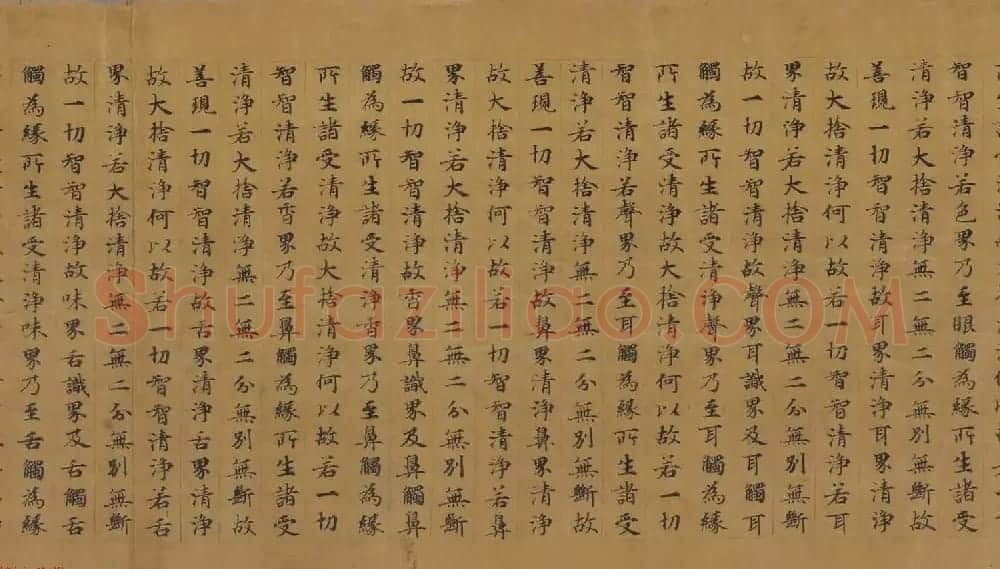 智智清浄若色界乃至眼觸為緣所生諸受
清浄若大捨清浄無二無二分無別無斷故
善現一切智智清浄故耳界清浄耳界清浄
故大捨清浄何以故若一切智智清浄若耳
界清浄若大捨清浄無二無二分無別無斷
故一切智智清浄故聲界耳識界及耳觸耳
觸為緣所生諸受清浄聲界乃至耳觸為緣
所生諸受清浄故大捨清浄何以故若一切
智智清浄若聲界乃至耳觸為緣所生諸受
清浄若大捨清浄無二無二分無別無斷故
善現一切智智清浄故鼻界清浄鼻界清浄
故大捨清浄何以故若一切智智清浄若鼻
界清浄若大捨清浄無二無二分無別無斷
故一切智智清浄故香界鼻識界及鼻觸鼻
觸為緣所生諸受清浄香界乃至鼻觸為緣
所生諸受清浄故大捨清浄何以故若一切
智智清浄若香界乃至鼻觸為緣所生諸受
清浄若大捨清浄無二無二分無別無斷故
善現一切智智清浄故舌界清浄舌界清浄
故大捨清浄何以故若一切智智清浄若舌
界清浄若大捨清浄無二無二分無別無斷
故一切智智清浄故味界舌識界及舌觸舌
觸為緣所生諸受清浄味界乃至舌觸為緣
Shufaziliao.COM